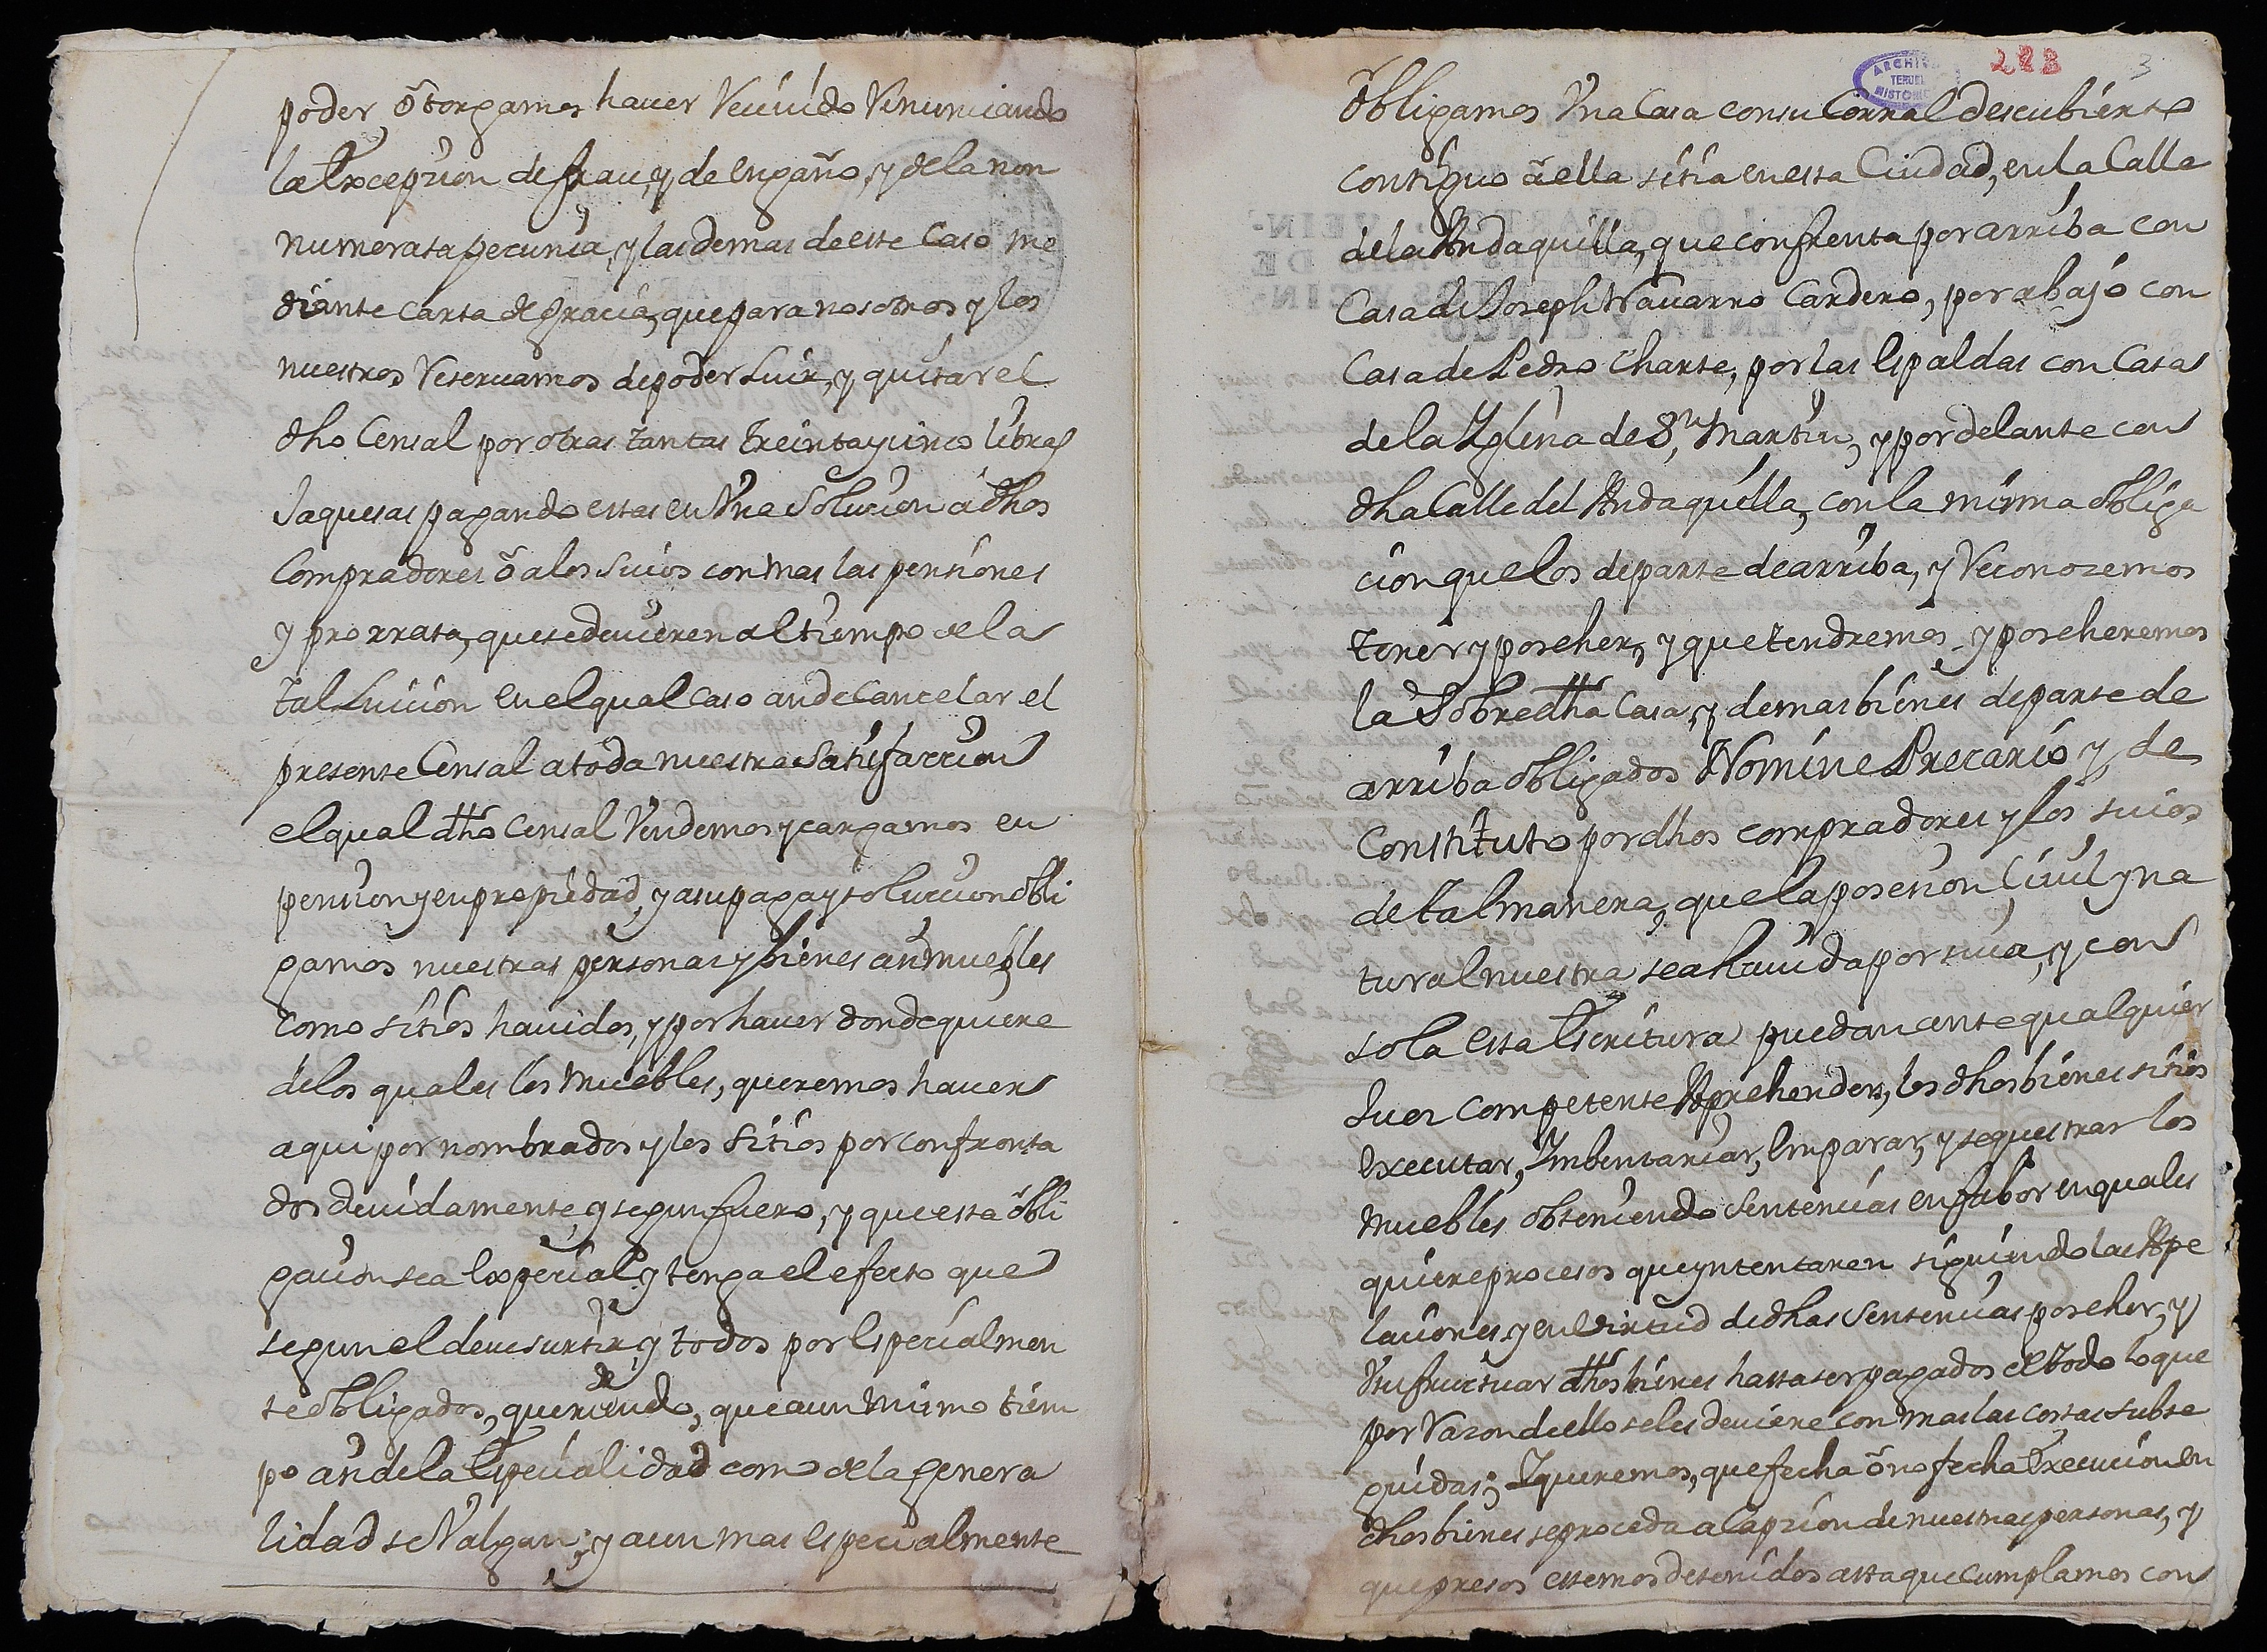 poder, otorgamos hauer Reciuido Renunciando
la Excepcion de frau, y de engaño, y de la non
numerata pecunia, y las demas de este Caso me
diante Carta de gracia, que para nosotros y los
nuestros Reseruamos de poder Luir, y quitar el
dho Censal por otras tantas treinta y cinco libras
Jaquesas pagando estas en Vna Solucion â dhos
Compradores ô a los suios con mas las pensiones
y prorrata, que se deuieren al tiempo de la
tal Luicion en el qual caso an de Cancelar el
presente Censal a toda nuestra Satisfaccion
el qual dho Censal Vendemos y cargamos en
pension y en propiedad, y a su paga y solucion obli
gamos nuestras personas y bienes assi muebles
como sitios hauidos, y por hauer donde quiere
de los quales los muebles, queremos hauer
aqui por nombrados y los sitios por confronta
dos deuidamente, y segun fuero, y que esta obli
gacion sea Especial y tenga el efecto que
segun el deue surtir, y todos por Especialmen
te obligados, queriendo, que a un mismo tiem
po assi de la Especialidad como de la genera
lidad se Valgan; y aun mas especialmente
ARCHIVO
TERUEL
HISTORICO
222
3
obligamos Vna Casa con su Corral descubierto
contiguo â ella sitia en esta Ciudad, en la Calle
de la Andaquilla, que confrenta por arriba con
Casa de Joseph Nauarro Cardero, por abajo con
Casa de Pedro Charte, por las Espaldas con Casas
de la Iglesia de Sn Martin, y por delante con
dha Calle del Andaquilla, con la misma obliga
cion que los de parte de arriba, y Reconozemos
tener y poseher, y que tendremos, y poseheremos
la Sobredha Casa, y demas bienes de parte de
arriba obligados Nomine Precario y de
Constituto por dhos compradores y los suios
de tal manera, que la posesion Ciuil y na
tural nuestra sea hauida por suia, y con
sola esta Escritura puedan ante qualquier
Juez competente Aprehender, los dhos bienes sitios
Executar, Imbentariar, Emparar, y sequestrar los
muebles obteniendo Sentencias en fabor en quales
quiere procesos que yntentaren siguiendo las Ape
laciones, y en Virtud de dhas Sentencias poseher, y
Vsufructuar dhos bienes hasta ser pagados de todo lo que
por Razon de ello se les deuiere con mas las costas subse
guidas; Y queremos, que fecha ô no fecha Execucion en
dhos bienes se proceda a la prision de nuestras personas, y
que presos estemos detenidos asta que Cumplamos con